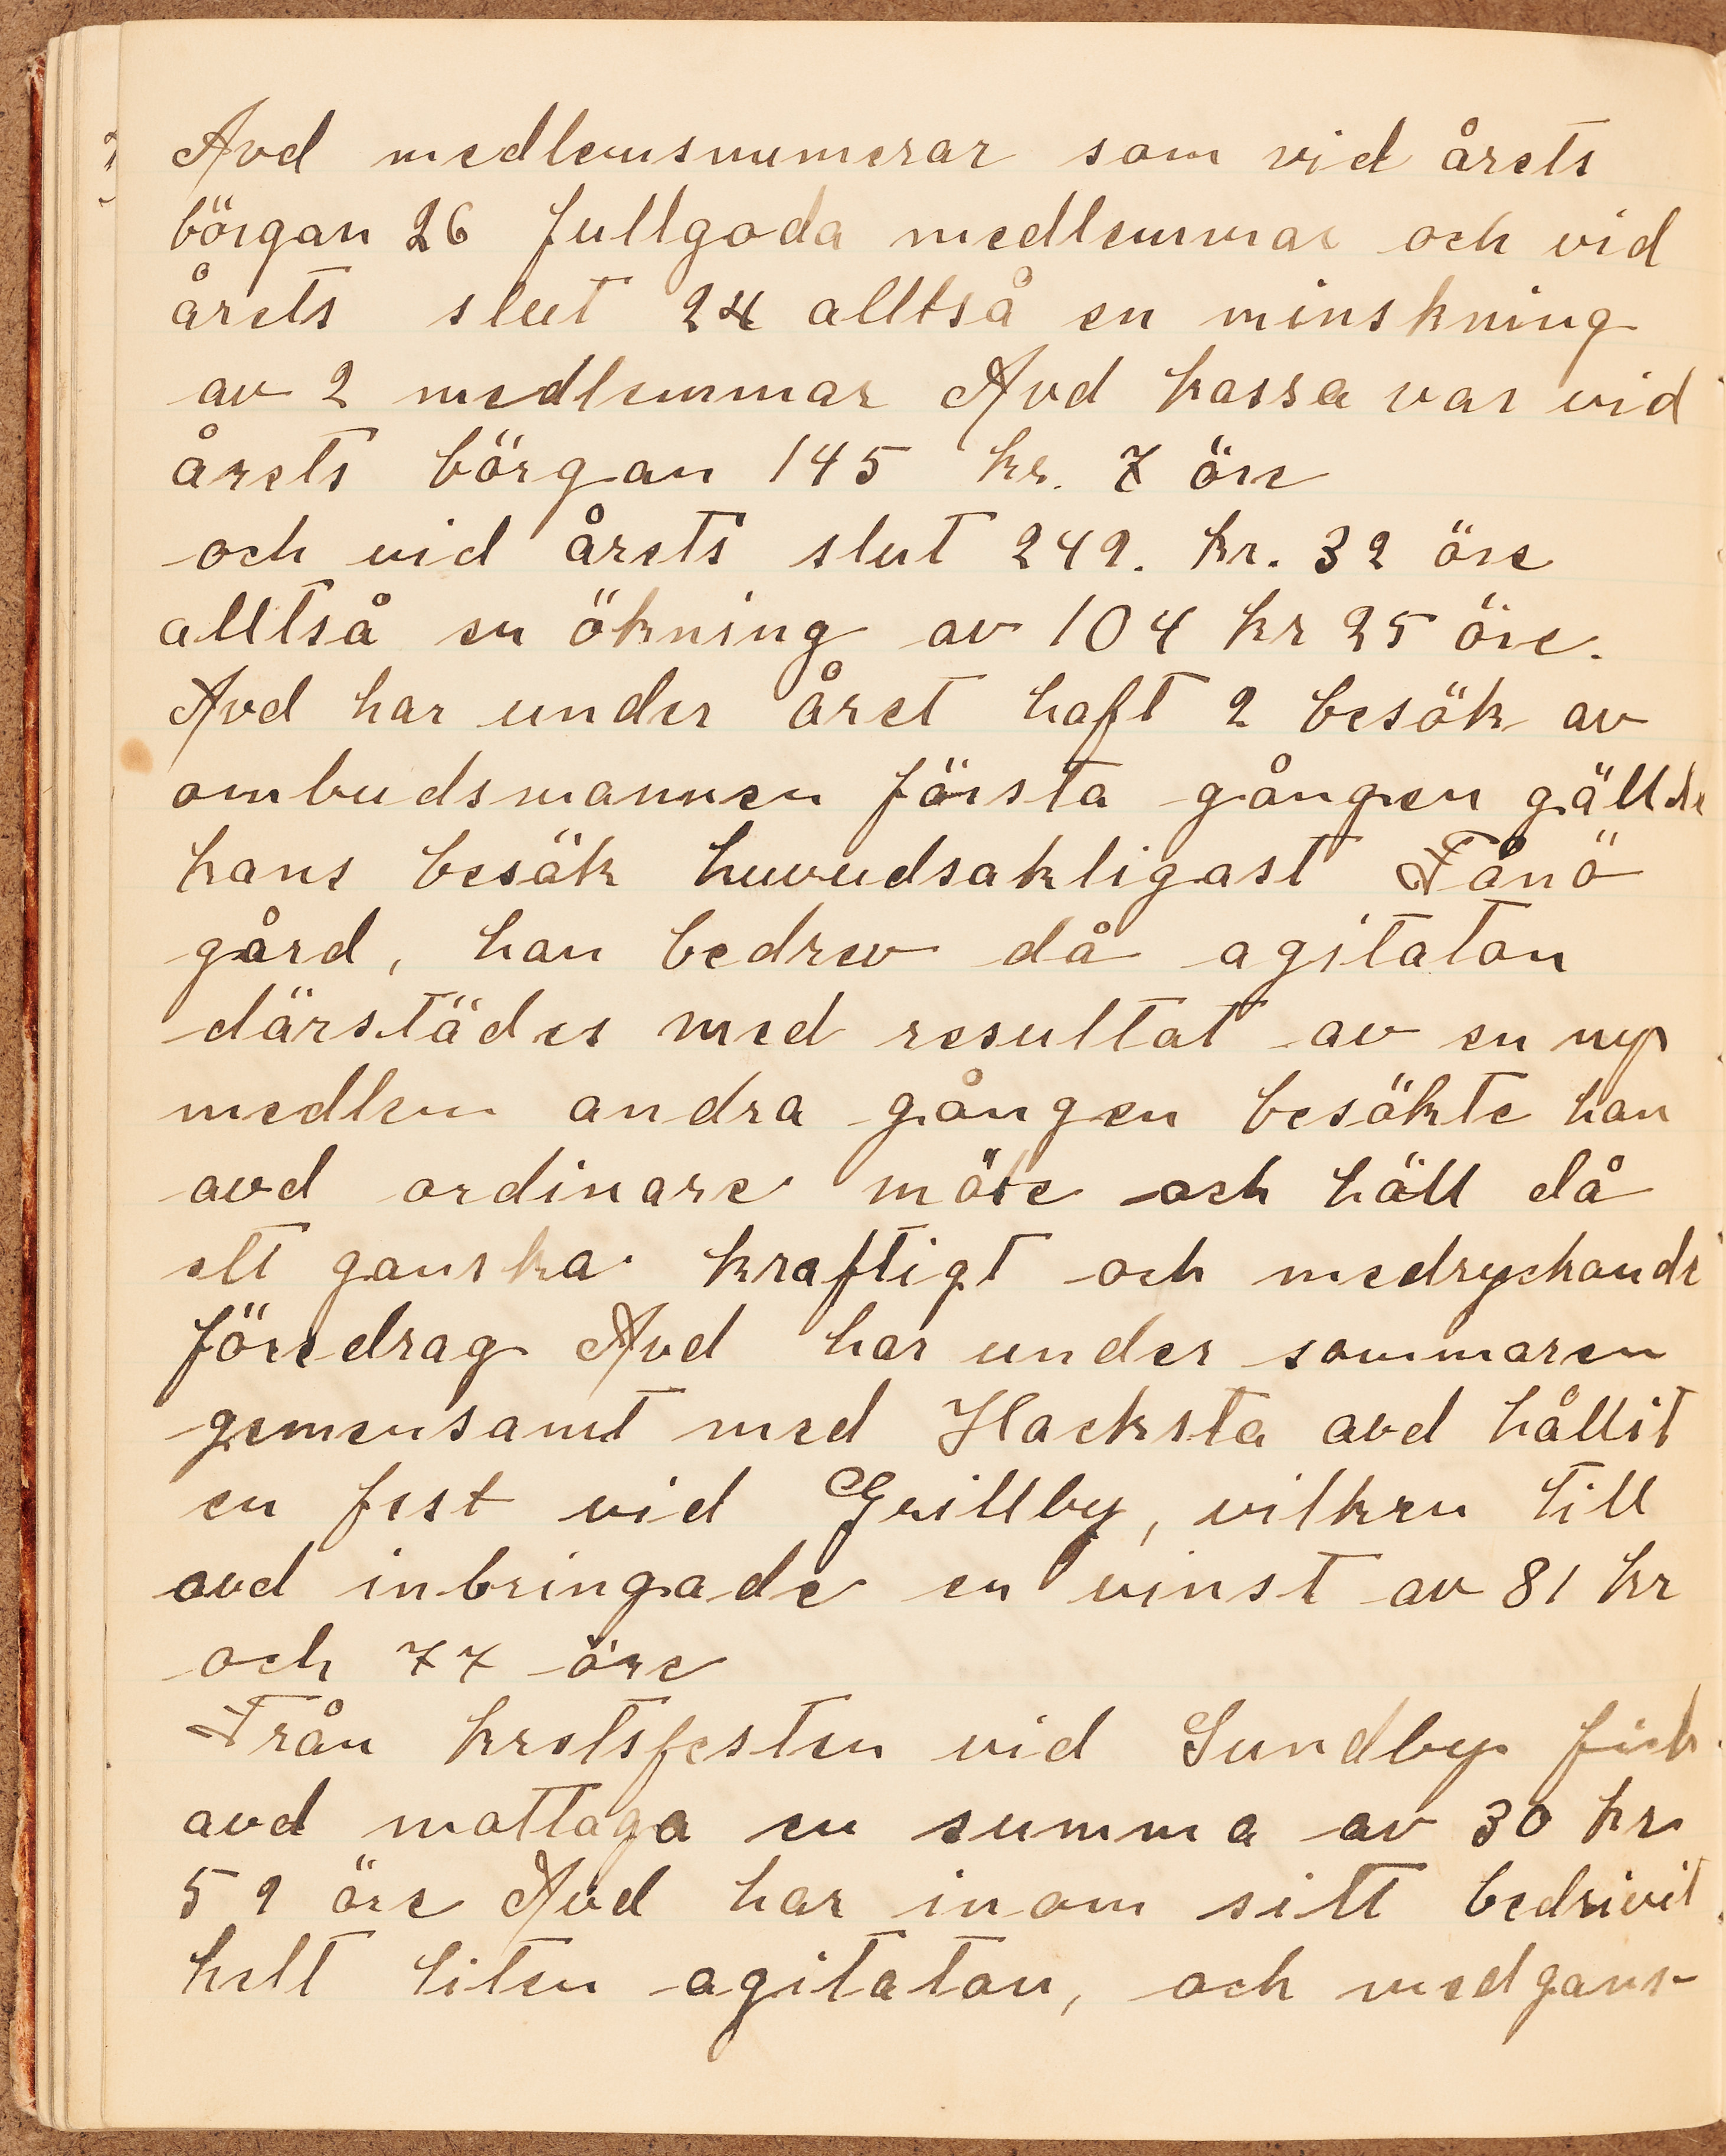 Avd medlemsnumerar som vid årets
börgan 26 fullgoda medlemmar och vid
årets slut 24 alltså en minskning
av 2 medlemmar Avd kassa var vid
årets börgan 145 kr. 7 öre
och vid årets slut 249. kr. 32 öre
alltså en ökning av 104 kr 25 öre.
Avd har under året haft 2 besök av
ombudsmannen första gången gällde
hans besök huvudsakligast Fånö
gård, han bedrev då agitaton
därstädes med resultat av en ny
medlem andra gången besökte han
avd ordinare möte och höll då
ett ganska kraftigt och medryckande
föredrag Avd har under sommaren
gemensamt med Hacksta avd hållit
en fest vid Grillby, vilken till
avd inbringade en vinst av 81 kr
och 77 öre
Från kretsfesten vid Sundby fick
avd mottaga en summa av 30 kr
59 öre Avd har inom sitt bedrivit
helt liten agitaton, och med gans-